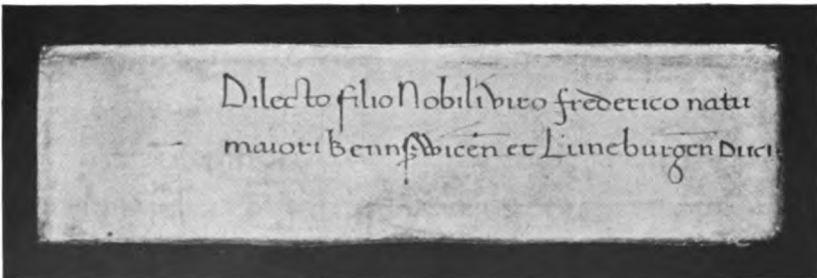 Dilecto filio Nobili viro frederico natu
maiori Bennswicen et Luneburgen Duci